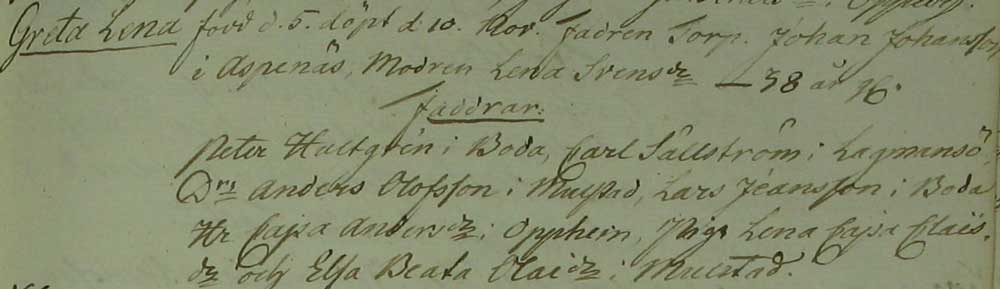 Greta Lena född d. 5. döpt d 10. Nov. Fadren Torp. Johan Johansson
i Aspenäs, Modren Lena Svensdr — 38 år
faddrar.
Peter Hultgrén i Boda, Carl Sällström i Lagmansö,
Drs Anders Olofsson i Mulstad, Lars Jéansson i Boda
Hr Cajsa Andersdr i Opphem, Pig. Lena Cajsa Claës
dr och Elsa Beata Olaidr i Mulstad.